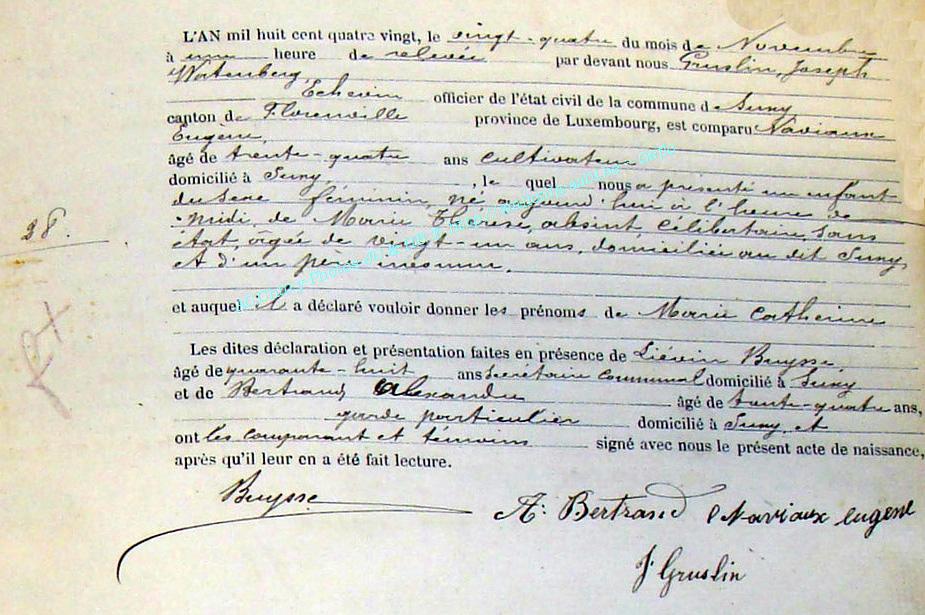 L'AN mil huit cent quatre vingt, le vingt-quatre du mois de Novembre
à une heure de relevée par devant nous Gruslin, Joseph
Watenberg,
Echevin officier de l'état civil de la commune de Suny
canton de Florenville province de Luxembourg, est comparu Naviaux
Eugène,
âgé de trente-quatre ans cultivateur
domicilié à Suny, le quel nous a présenté un enfant
du sexe féminin, né aujourd'hui à l'heure de
midi, de Marie Thérèse, absint, Célibertaire, sans
état, âgée de vingt-un ans, domiciliée au dit Suny,
et d'un père inconnu.
28.
et auquel il a déclaré vouloir donner les prénoms de Marie Catherine
Les dites déclaration et présentation faites en présence de Liévin Buysse
âgé de quarante-huit ans Secrétaire communal domicilié à Suny
et de Bertrand Alexandre âgé de trente-quatre ans,
garde particulier domicilié à Suny, et
ont les comparant et témoins signé avec nous le présent acte de naissance,
après qu'il leur en a été fait lecture.
Buysse
A. Bertrand Naviaux eugene
J Gruslin